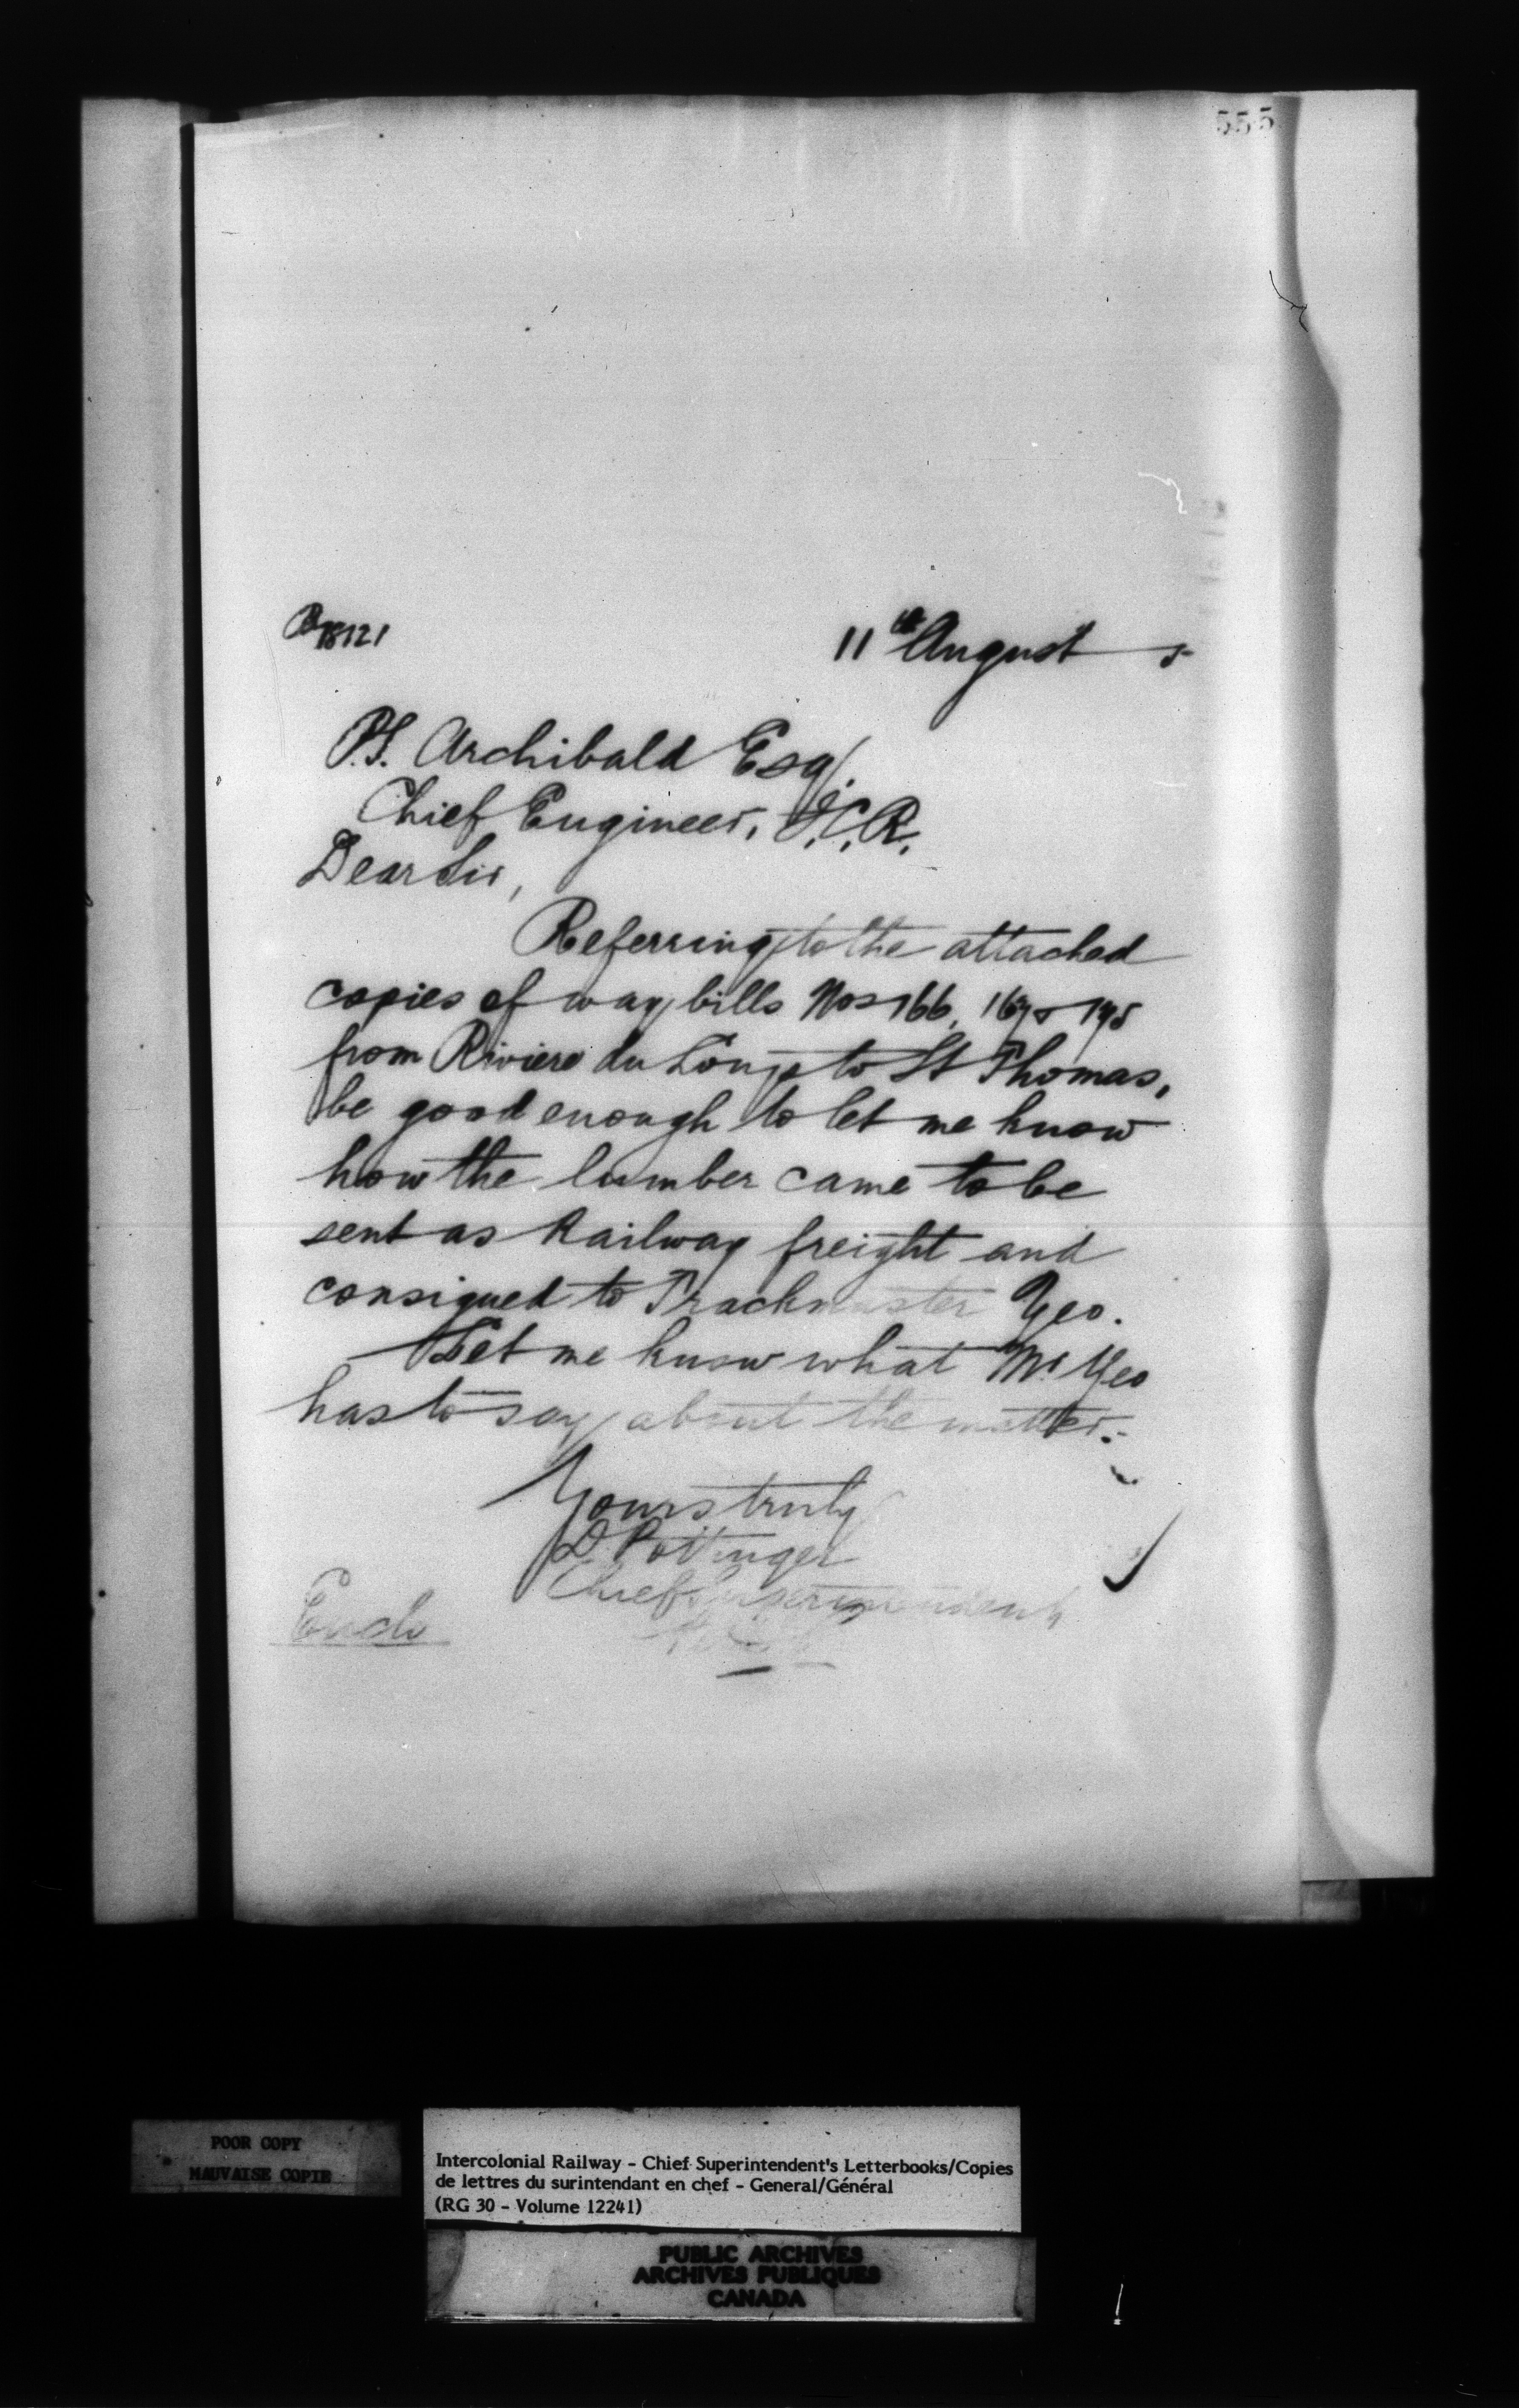 555
B18121
11th August 5
P.S. Archibald Esq.
Chief Engineer, I.C.R.
Dear Sir,
Referring to the attached
copies of way bills Nos 166, 167 & 175
from Riviere du Loup to St Thomas,
be good enough to let me know
how the lumber came to be
sent as Railway freight and
consigned to Trackmaster Yeo.
Let me know what Mr Yeo
has to say about the matter.
Yours truly
D Pottinger
Chief Superintendent
Enclo
POOR COPY
MAUVAISE COPIE
Intercolonial Railway - Chief Superintendent's Letterbooks/Copies
de lettres du surintendant en chef - General/Général
(RG 30 - Volume 12241)
PUBLIC ARCHIVES
ARCHIVES PUBLIQUES
CANADA